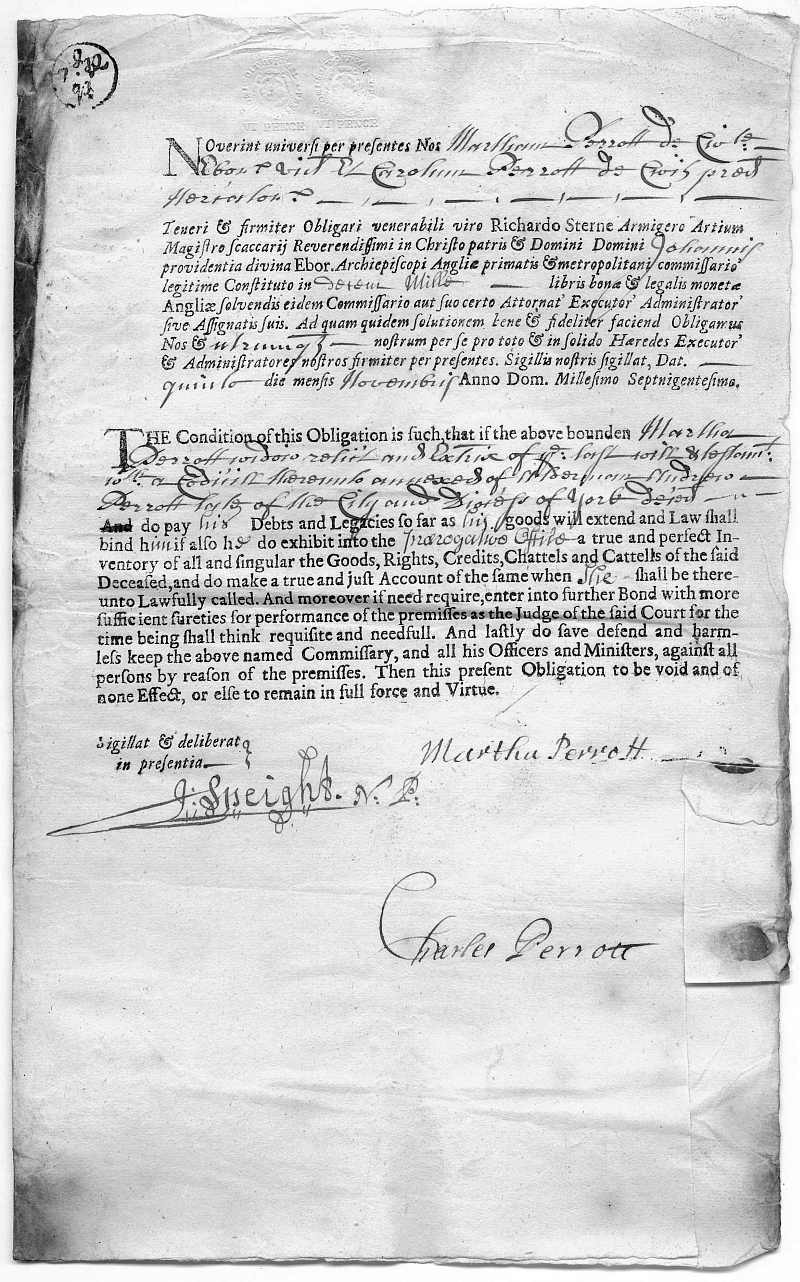 VI PENCE VI PENCE
NOverint universi per presentes Nos Martham Perrott de Civ te
Ebor vid Et Carolum Perrott de Civit pred
Mercator
Teneri & firmiter Obligari venerabili viro Richardo Sterne Armigero Artium
Magistro scaccarij Reverendissimi in Christo patris & Domini Domini Johannis
providentia divina Ebor. Archiepiscopi Angliæ primatis & metropolitani commissario
legitime Constituto in decem Mille libris bonæ & legalis monetæ
Angliæ solvendis eidem Commissario aut suo certo Attornat' Executor' Administrator'
sive Assignatis suis. Ad quam quidem solutionem bene & fideliter faciend Obligamus
Nos & utrumqz nostrum per se pro toto & in solido Hæredes Executor'
& Administratores nostros firmiter per presentes. Sigillis nostris sigillat, Dat.
quinto die mensis Novembris Anno Dom. Millesimo Septnigentesimo.
THE Condition of this Obligation is such, that if the above bounden Martha
Perrott widow relict and Extrix of ye: last will & testamt:
wth a Codicill thereunto annexed of Alderman Andrew
Perrott late of the City and Diocess of York deced
And do pay his Debts and Legacies so far as his goods will extend and Law shall
bind him if also he do exhibit into the Prærogative Office a true and perfect In-
ventory of all and singular the Goods, Rights, Credits, Chattels and Cattells of the said
Deceased, and do make a true and just Account of the same when She shall be there-
unto Lawfully called. And moreover if need require, enter into further Bond with more
sufficient sureties for performance of the premisses as the Judge of the said Court for the
time being shall think requisite and needfull. And lastly do save defend and harm-
less keep the above named Commissary, and all his Officers and Ministers, against all
persons by reason of the premisses. Then this present Obligation to be void and of
none Effect, or else to remain in full force and Virtue.
Sigillat & deliberat
in presentia
Martha Perrott
J: Speight. N. P:
Charles Perrott